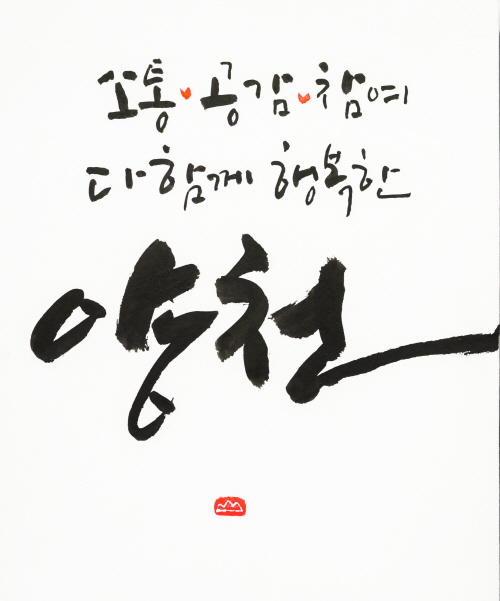 소통♥공감♥참여
다함께 행복한
양천